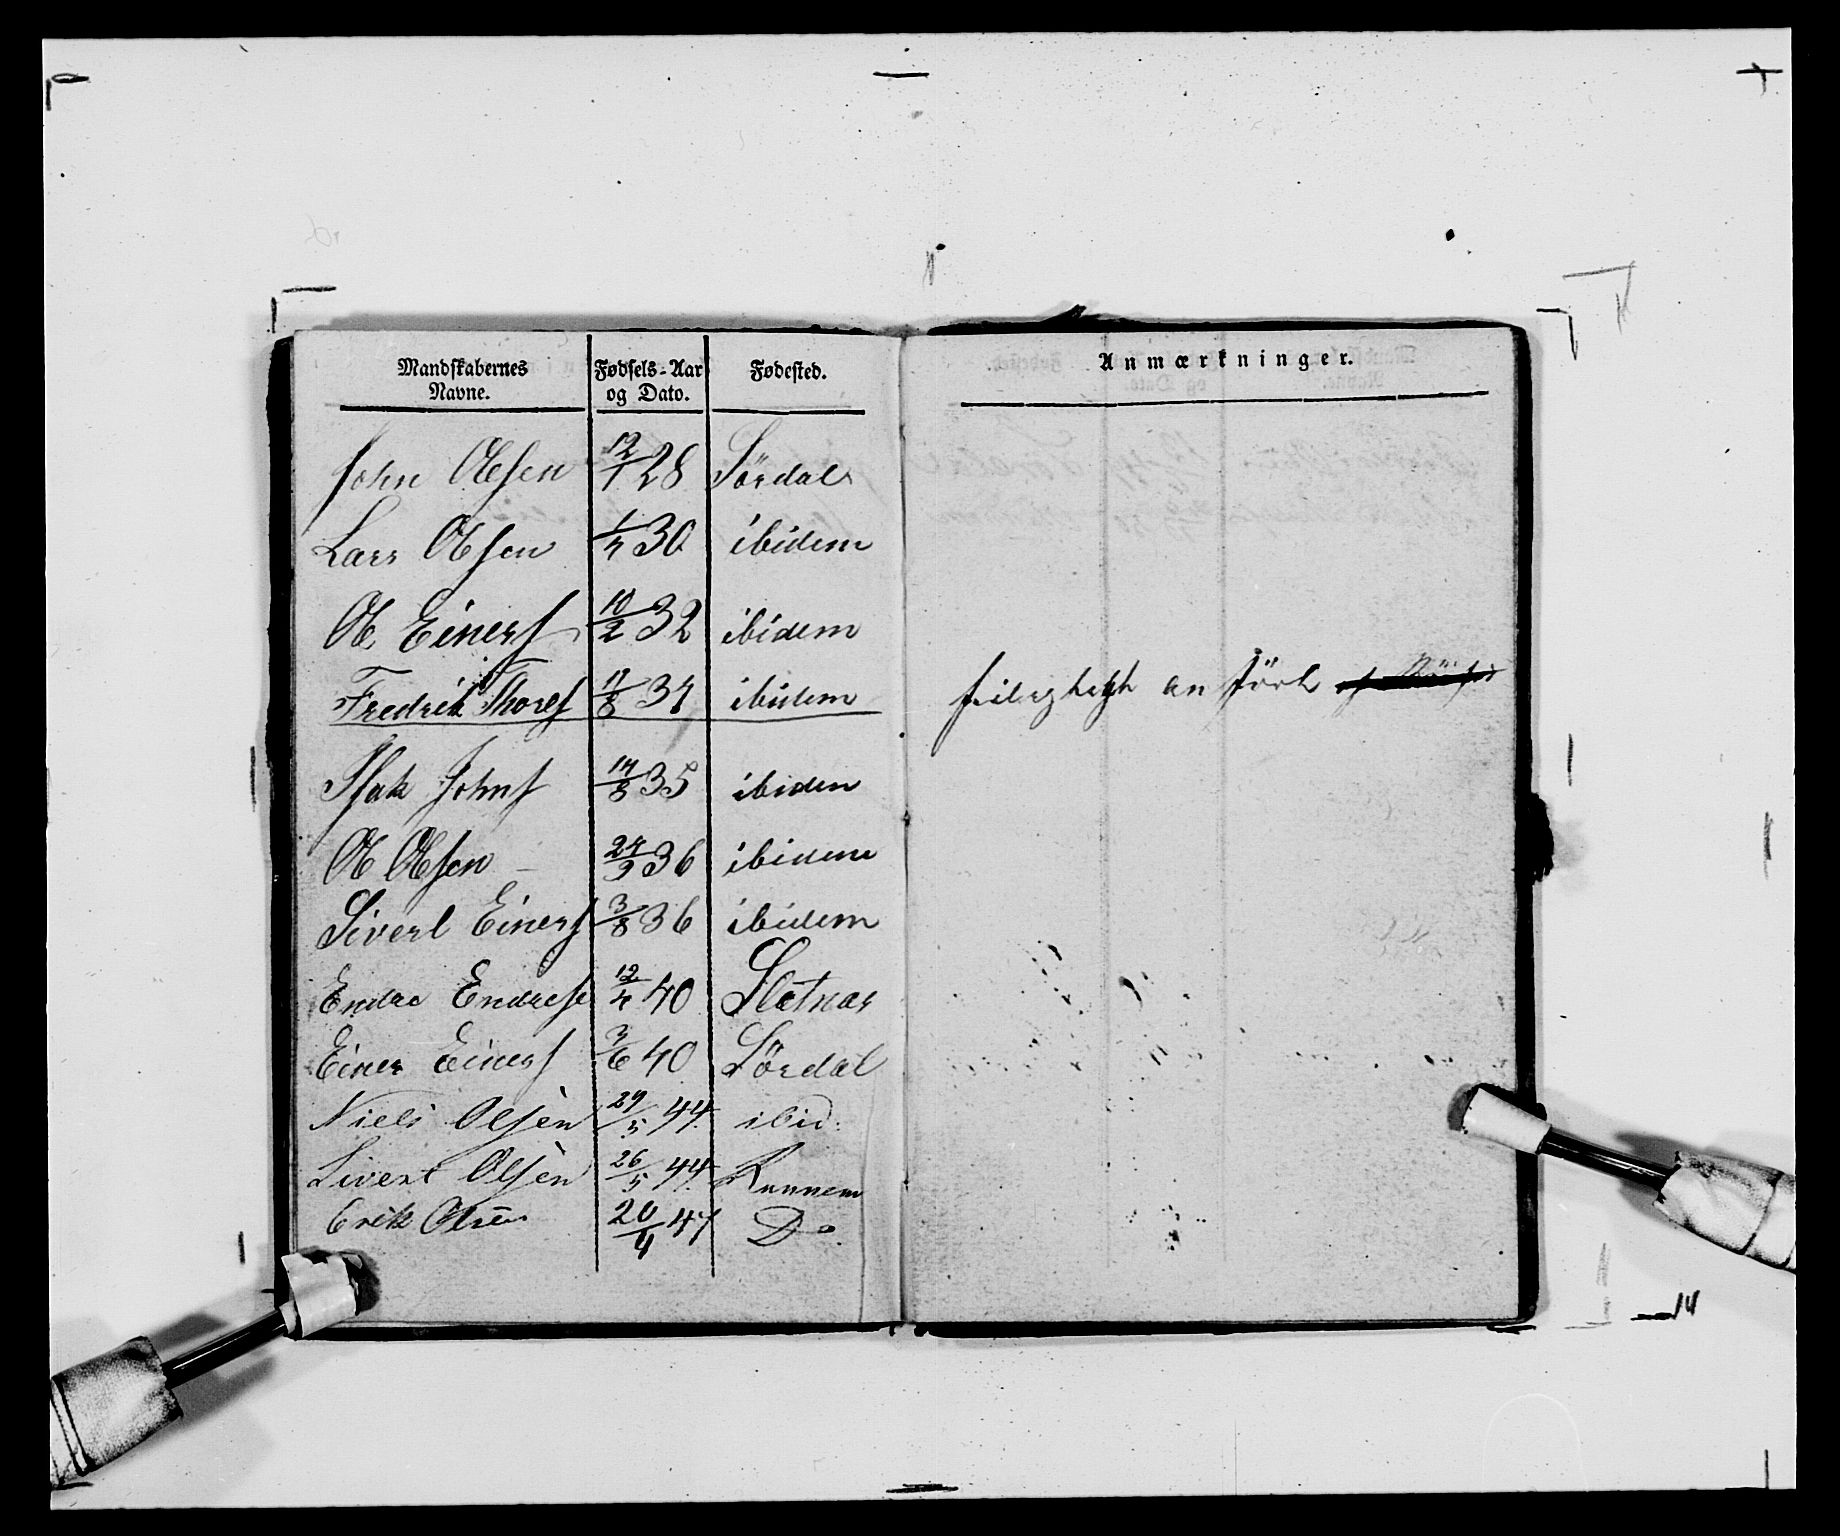 Mandskabernes Navne. Fødsels-Aar og Dato. Fødested. Anmærkninger.
John Olsen 12/1 28 Sördal
Lars Olsen 1/7 30 ibidem
Ol Einers 10/2 32 ibidem
Fredrik Thores 11/8 34 ibidem an
Isak Johns 14/8 35 ibidem
Ol Olsen 24/9 36 ibidem
Sivert Einers 3/8 36 ibidem
Endre Endres 12/4 40 Slotnes
Einer Einers 3/6 40 Sördal
Niels Olsèn 29/5 44. ibid.
Sivert Olsèn 26/5 44. Runnem
Erik Olsen 20/4 47 Do.
14